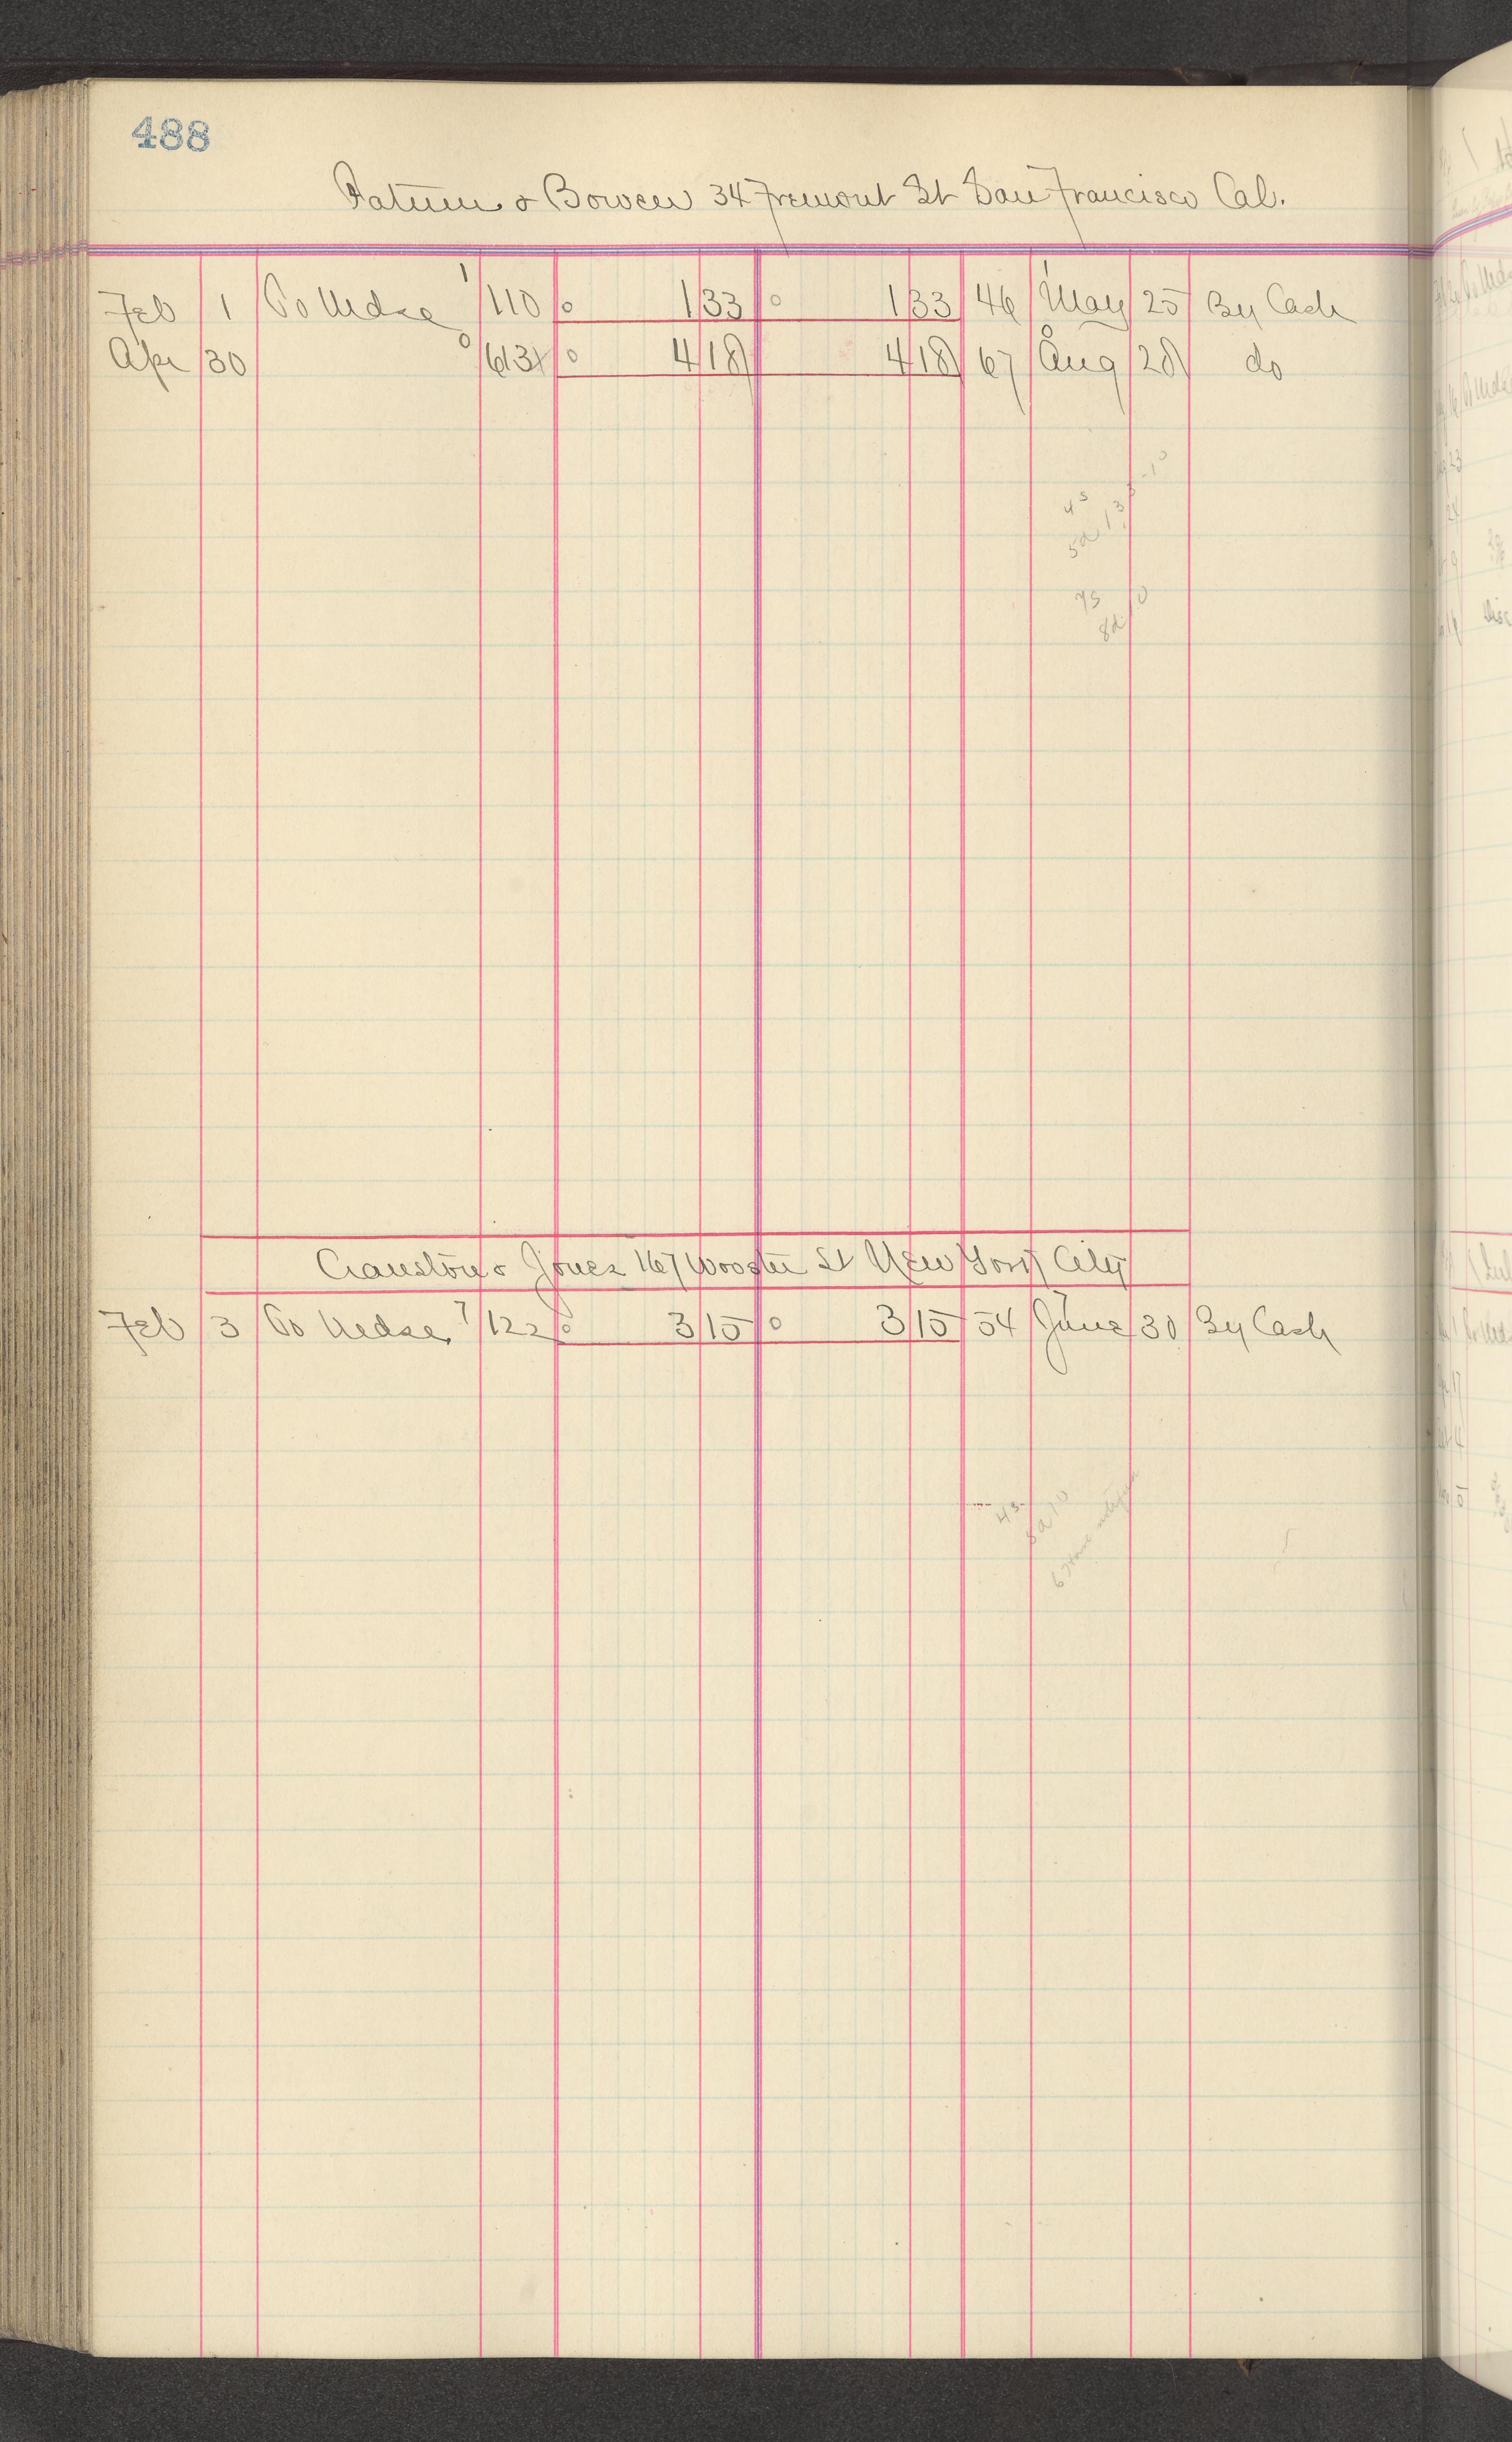 488
Tatum & Bowen 34 Fremont St San Francisco Cal.
Feb 1 To Mdse 1 110 1 33 1 33 46 May 25 By Cash
Apr 30 613 4 18 4 18 67 Aug 28 do
4 s
5a 13
7s 10
8a
Cranston & Jones 167 Wooster St New York City
Feb 3 To Mdse 7 122 3 15 3 15 54 June 30 By Cash
4s
5a 10
6